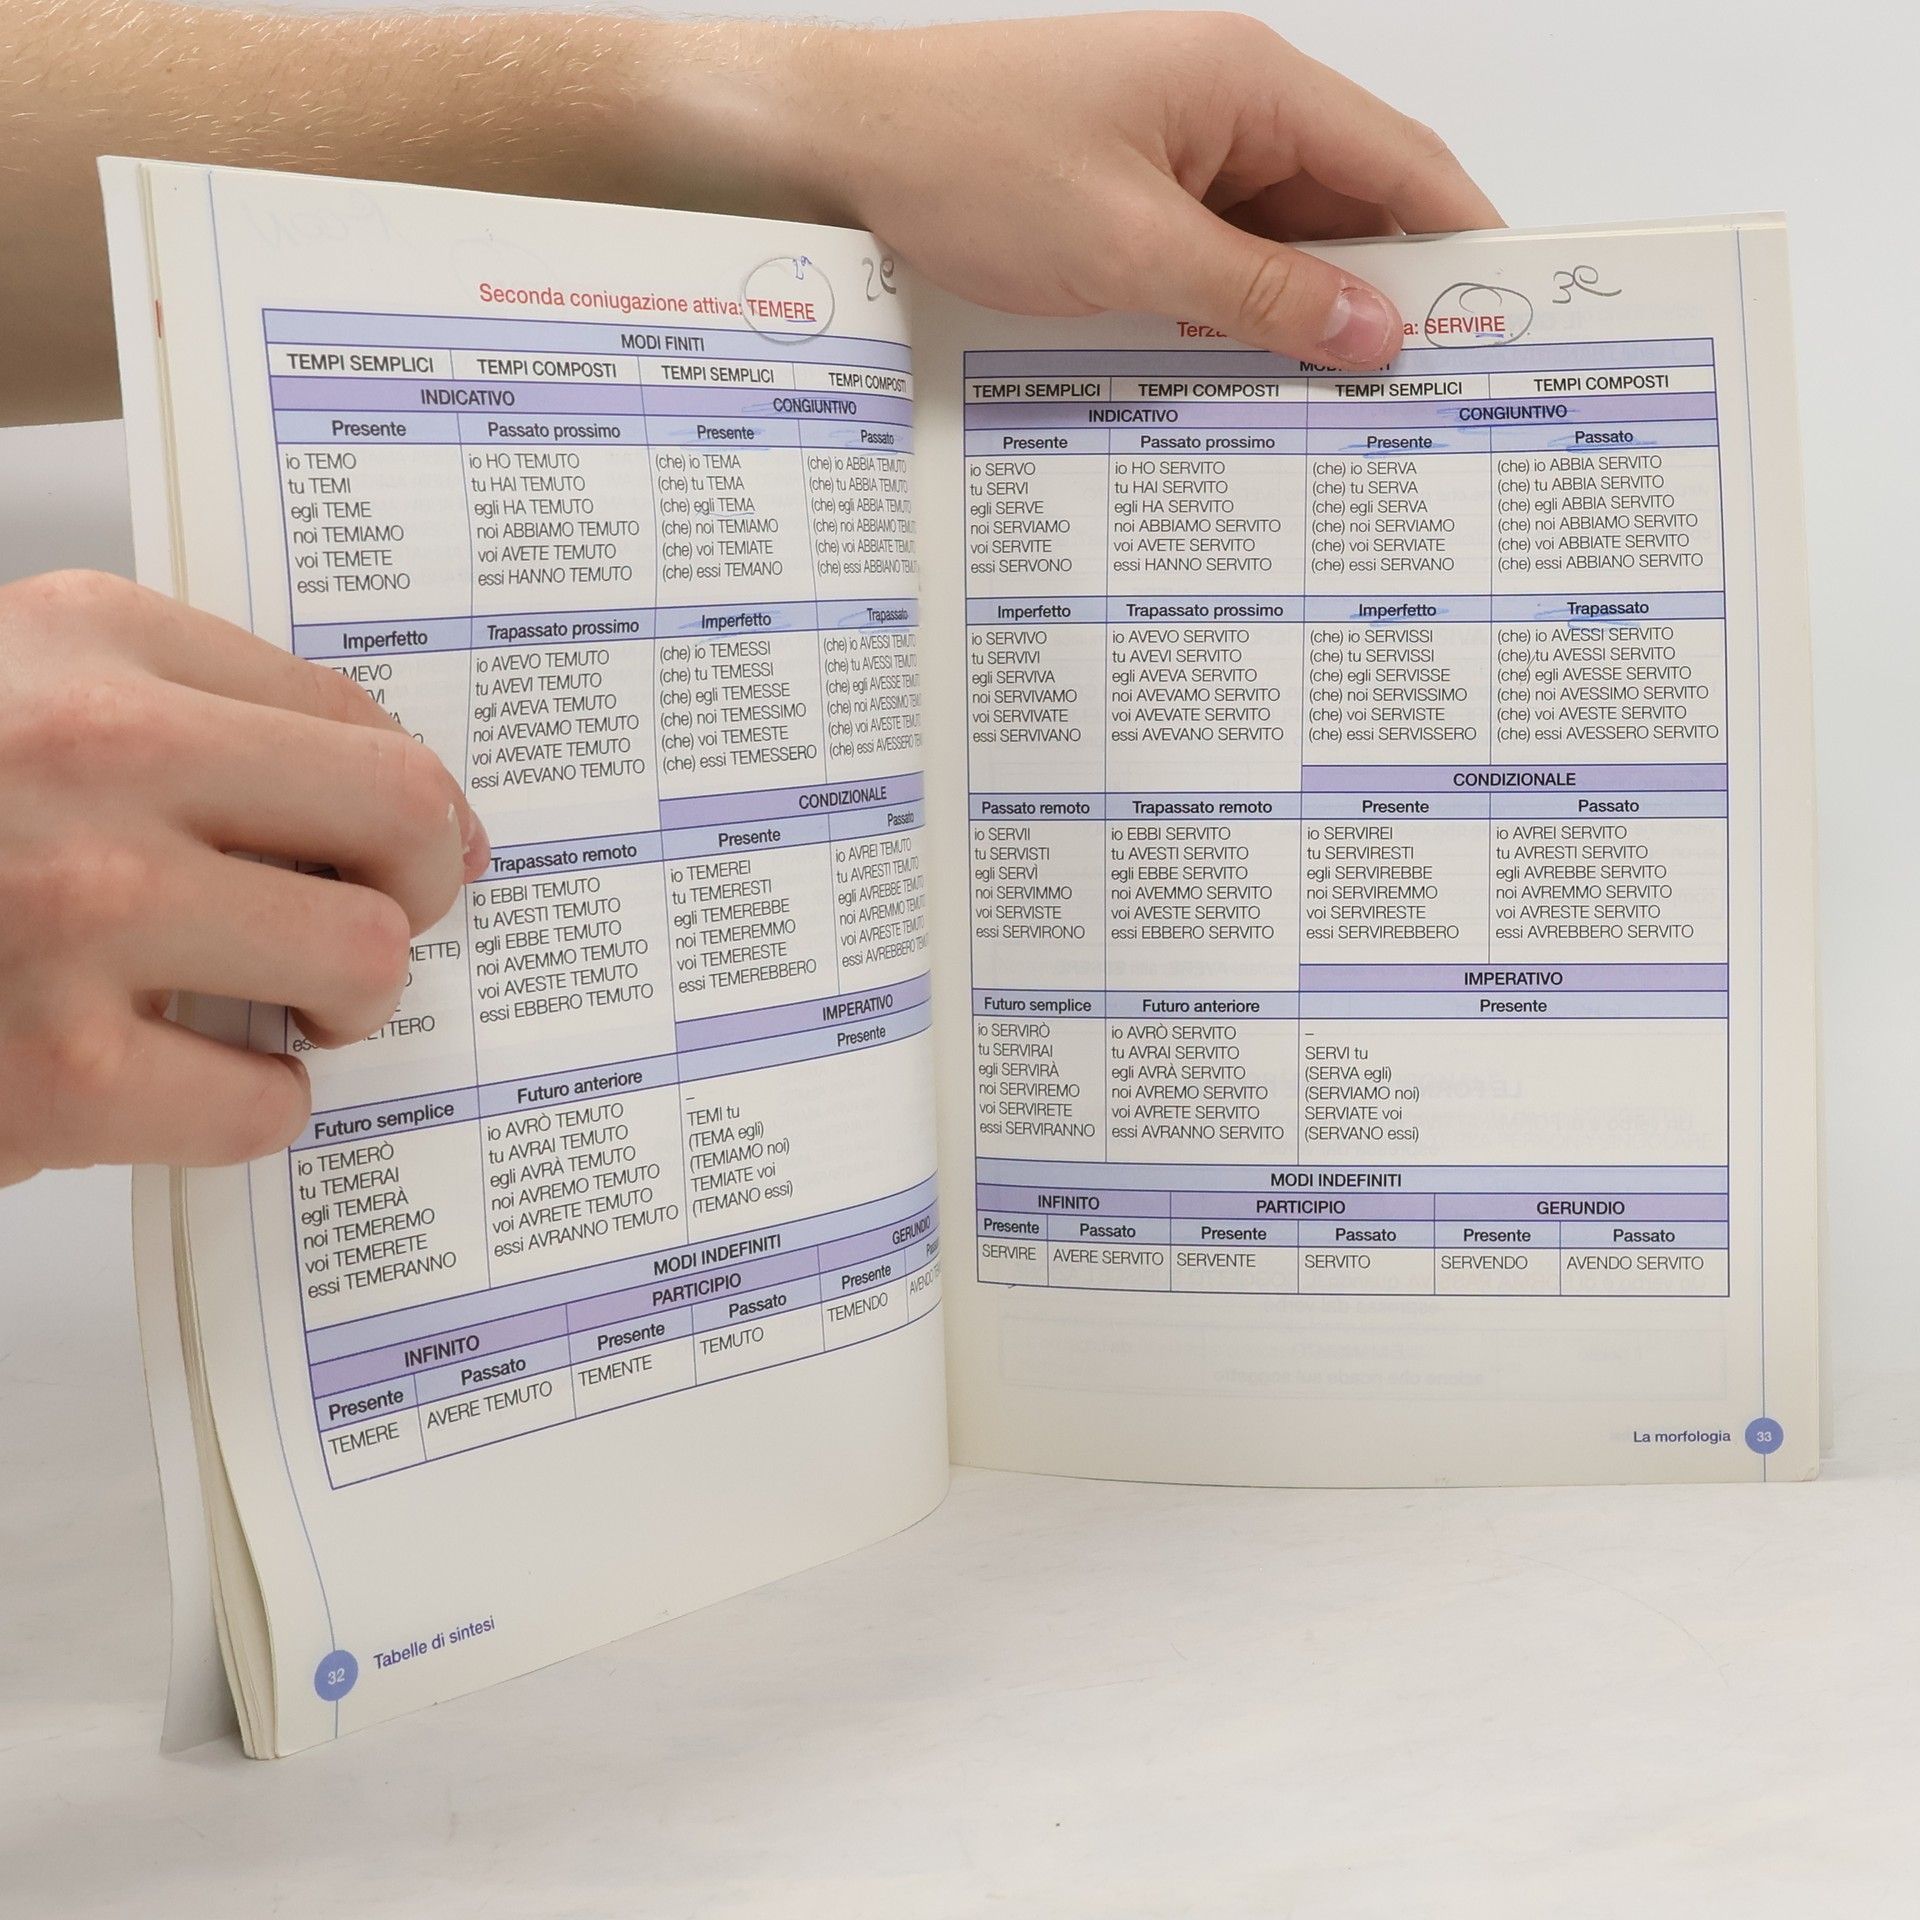 2a
2e
Seconda coniugazione attiva: TEMERE
MODI FINITI
TEMPI SEMPLICI TEMPI COMPOSTI TEMPI SEMPLICI TEMPI COMPOSTI
INDICATIVO CONGIUNTIVO
Presente Passato prossimo Presente Passato
io TEMO io HO TEMUTO (che) io TEMA (che) io ABBIA TEMUTO
tu TEMI tu HAI TEMUTO (che) tu TEMA (che) tu ABBIA TEMUTO
egli TEME egli HA TEMUTO (che) egli TEMA (che) egli ABBIA TEMUTO
noi TEMIAMO noi ABBIAMO TEMUTO (che) noi TEMIAMO (che) noi ABBIAMO TEMUTO
voi TEMETE voi AVETE TEMUTO (che) voi TEMIATE (che) voi ABBIATE TEMUTO
essi TEMONO essi HANNO TEMUTO (che) essi TEMANO (che) essi ABBIANO
Imperfetto Trapassato prossimo Imperfetto Trapassato
MEVO io AVEVO TEMUTO (che) io TEMESSI (che) io AVESSI TEMUTO
VI tu AVEVI TEMUTO (che) tu TEMESSI (che) tu AVESSI TEMUTO
egli AVEVA TEMUTO (che) egli TEMESSE (che) egli AVESSE
noi AVEVAMO TEMUTO (che) noi TEMESSIMO (che) noi AVESSIMO
voi AVEVATE TEMUTO (che) voi TEMESTE (che) voi AVESTE
essi AVEVANO TEMUTO (che) essi TEMESSERO (che) essi AVESSERO
CONDIZIONALE
Trapassato remoto Presente Passato
io EBBI TEMUTO io TEMEREI io AVREI TEMUTO
tu AVESTI TEMUTO tu TEMERESTI tu AVRESTI TEMUTO
egli EBBE TEMUTO egli TEMEREBBE egli AVREBBE
METTE) noi AVEMMO TEMUTO noi TEMEREMMO noi AVREMMO
voi AVESTE TEMUTO voi TEMERESTE voi AVRESTE
ETTERO essi EBBERO TEMUTO essi TEMEREBBERO essi AVREBBERO
IMPERATIVO
Futuro semplice Futuro anteriore Presente
io TEMERÒ io AVRÒ TEMUTO –
tu TEMERAI tu AVRAI TEMUTO TEMI tu
egli TEMERÀ egli AVRÀ TEMUTO (TEMA egli)
noi TEMEREMO noi AVREMO TEMUTO (TEMIAMO noi)
voi TEMERETE voi AVRETE TEMUTO TEMIATE voi
essi TEMERANNO essi AVRANNO TEMUTO (TEMANO essi)
MODI INDEFINITI
INFINITO PARTICIPIO GERUNDIO
Presente Passato Presente Passato Presente
TEMERE AVERE TEMUTO TEMENTE TEMUTO TEMENDO AVENDO
32 Tabelle di sintesi
3e
Terza a: SERVIRE
TEMPI SEMPLICI TEMPI COMPOSTI TEMPI SEMPLICI TEMPI COMPOSTI
INDICATIVO CONGIUNTIVO
Presente Passato prossimo Presente Passato
io SERVO io HO SERVITO (che) io SERVA (che) io ABBIA SERVITO
tu SERVI tu HAI SERVITO (che) tu SERVA (che) tu ABBIA SERVITO
egli SERVE egli HA SERVITO (che) egli SERVA (che) egli ABBIA SERVITO
noi SERVIAMO noi ABBIAMO SERVITO (che) noi SERVIAMO (che) noi ABBIAMO SERVITO
voi SERVITE voi AVETE SERVITO (che) voi SERVIATE (che) voi ABBIATE SERVITO
essi SERVONO essi HANNO SERVITO (che) essi SERVANO (che) essi ABBIANO SERVITO
Imperfetto Trapassato prossimo Imperfetto Trapassato
io SERVIVO io AVEVO SERVITO (che) io SERVISSI (che) io AVESSI SERVITO
tu SERVIVI tu AVEVI SERVITO (che) tu SERVISSI (che) tu AVESSI SERVITO
egli SERVIVA egli AVEVA SERVITO (che) egli SERVISSE (che) egli AVESSE SERVITO
noi SERVIVAMO noi AVEVAMO SERVITO (che) noi SERVISSIMO (che) noi AVESSIMO SERVITO
voi SERVIVATE voi AVEVATE SERVITO (che) voi SERVISTE (che) voi AVESTE SERVITO
essi SERVIVANO essi AVEVANO SERVITO (che) essi SERVISSERO (che) essi AVESSERO SERVITO
CONDIZIONALE
Passato remoto Trapassato remoto Presente Passato
io SERVII io EBBI SERVITO io SERVIREI io AVREI SERVITO
tu SERVISTI tu AVESTI SERVITO tu SERVIRESTI tu AVRESTI SERVITO
egli SERVÌ egli EBBE SERVITO egli SERVIREBBE egli AVREBBE SERVITO
noi SERVIMMO noi AVEMMO SERVITO noi SERVIREMMO noi AVREMMO SERVITO
voi SERVISTE voi AVESTE SERVITO voi SERVIRESTE voi AVRESTE SERVITO
essi SERVIRONO essi EBBERO SERVITO essi SERVIREBBERO essi AVREBBERO SERVITO
IMPERATIVO
Futuro semplice Futuro anteriore Presente
io SERVIRÒ io AVRÒ SERVITO –
tu SERVIRAI tu AVRAI SERVITO SERVI tu
egli SERVIRÀ egli AVRÀ SERVITO (SERVA egli)
noi SERVIREMO noi AVREMO SERVITO (SERVIAMO noi)
voi SERVIRETE voi AVRETE SERVITO SERVIATE voi
essi SERVIRANNO essi AVRANNO SERVITO (SERVANO essi)
MODI INDEFINITI
INFINITO PARTICIPIO GERUNDIO
Presente Passato Presente Passato Presente Passato
SERVIRE AVERE SERVITO SERVENTE SERVITO SERVENDO AVENDO SERVITO
La morfologia 33